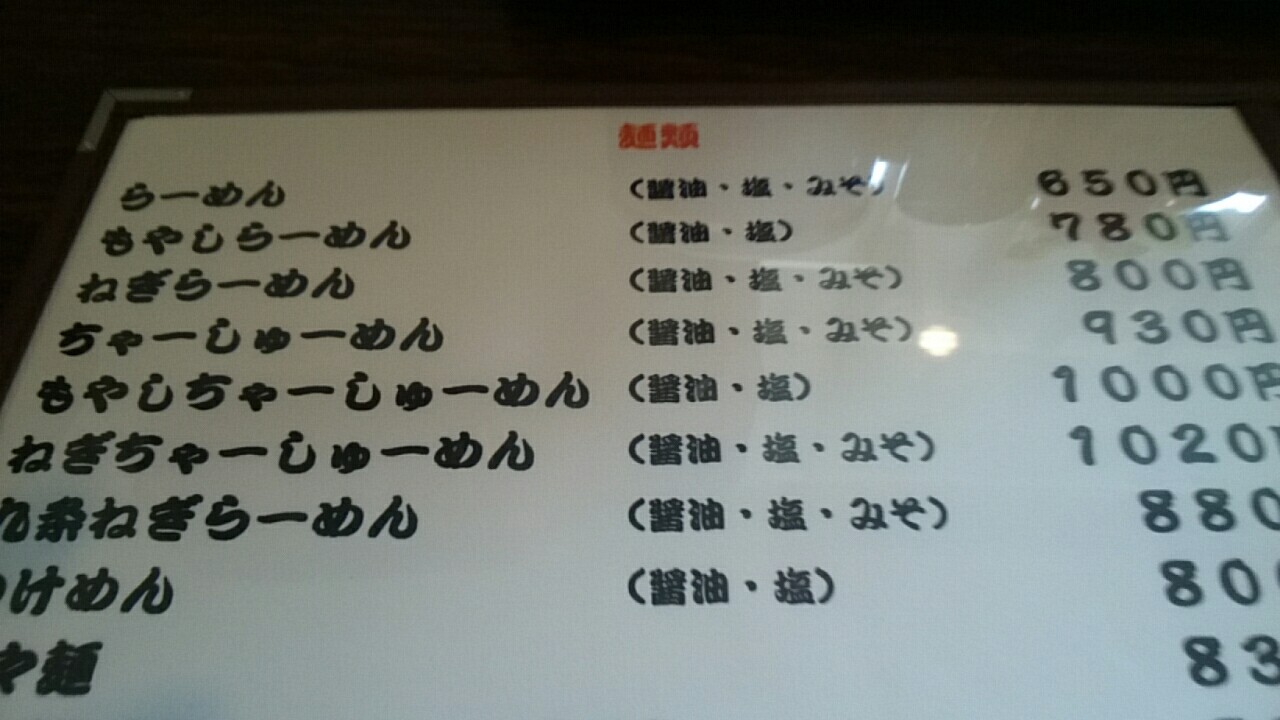 麺類
らーめん (醤油・塩・みそ) 650円
もやしらーめん (醤油・塩) 780円
ねぎらーめん (醤油・塩・みそ) 800円
ちゃーしゅーめん (醤油・塩・みそ) 930円
もやしちゃーしゅーめん (醤油・塩) 1000円
ねぎちゃーしゅーめん (醤油・塩・みそ) 1020円
九条ねぎらーめん (醤油・塩・みそ) 880
つけめん (醤油・塩) 800
麺 83